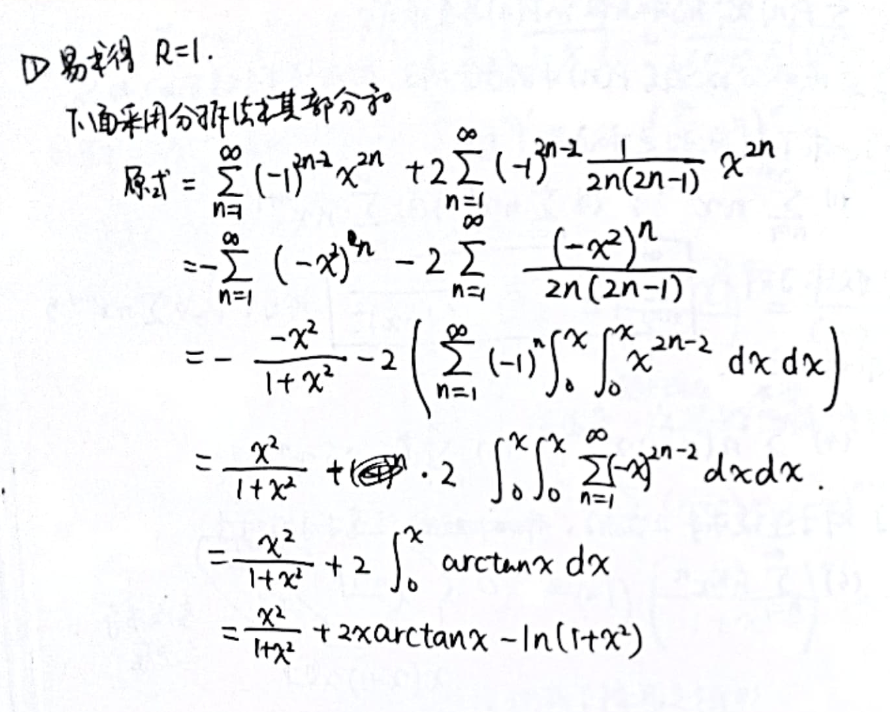 ① 易求得 R=1.
下面采用分拆法求其部分和
原式 = ∑_{n=1}^{∞} (-1)^{2n-2} x^{2n} + 2∑_{n=1}^{∞} (-1)^{2n-2} \frac{1}{2n(2n-1)} x^{2n}
= -∑_{n=1}^{∞} (-x²)^{n} - 2∑_{n=1}^{∞} \frac{(-x²)^n}{2n(2n-1)}
= - \frac{-x²}{1+x²} - 2 ( ∑_{n=1}^{∞} (-1)^n ∫_0^x ∫_0^x x^{2n-2} dx dx )
= \frac{x²}{1+x²} + · 2 ∫_0^x ∫_0^x ∑_{n=1}^{∞} (-x)^{2n-2} dxdx.
= \frac{x²}{1+x²} + 2 ∫_0^x arctanx dx
= \frac{x²}{1+x²} + 2xarctanx - ln(1+x²)